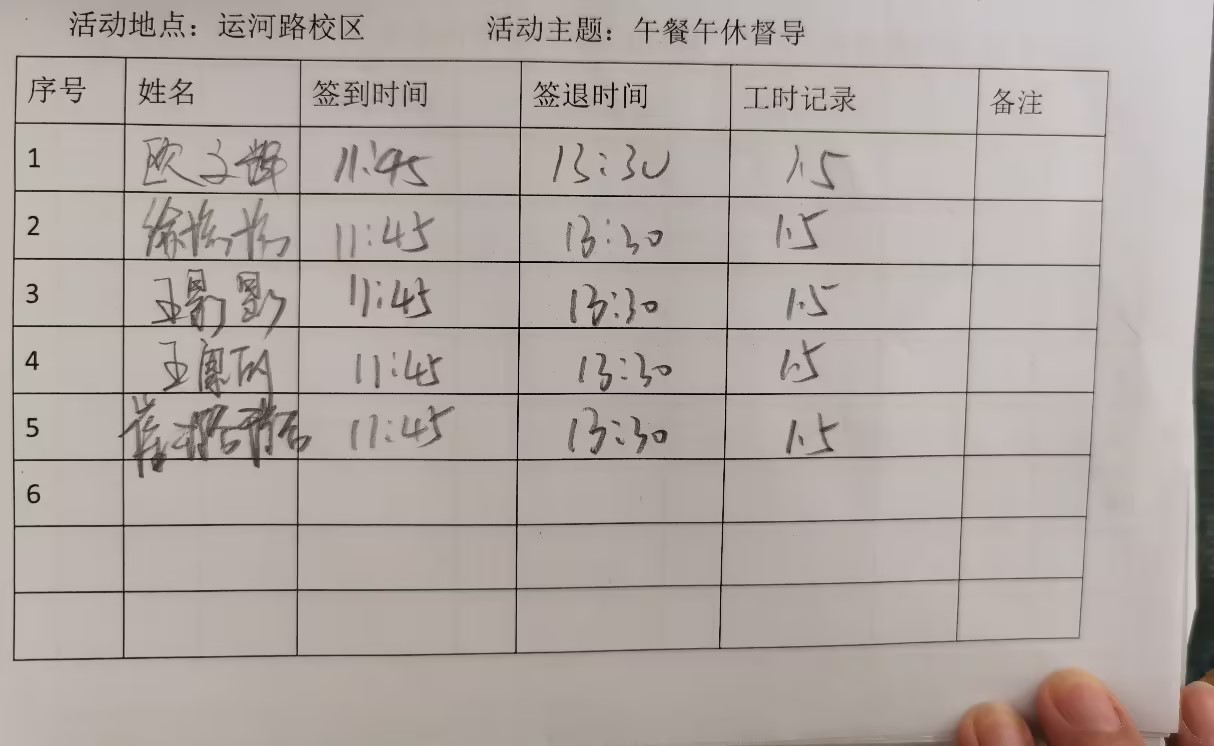 活动地点：运河路校区 活动主题：午餐午休督导
序号 姓名 签到时间 签退时间 工时记录 备注
1 欧文辉 11:45 13:30 1.5
2 徐 11:45 13:30 1.5
3 王 11:45 13:30 1.5
4 王 11:45 13:30 1.5
5 11:45 13:30 1.5
6